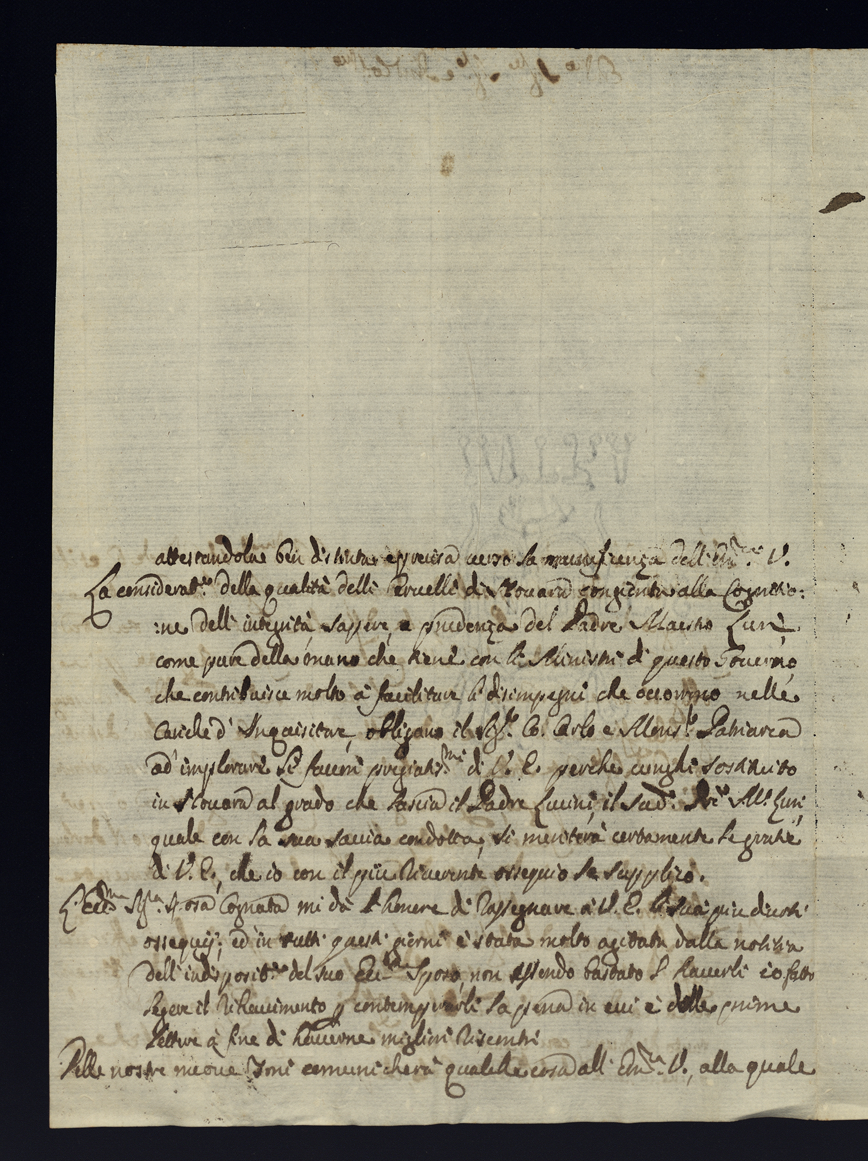 attestandola ben distinta e precisa verso la munificenza dell'Em.ma V.
La considerat.e della qualità delli Cervelli di Novara congionta alla Cognitio:
:ne dell'integrità, sapere, e prudenza del Padre Maestro Zuri
come pure della mano che tiene con li Ministri di questo Governo,
che contribuisce molto à facilitare li disimpegni che occorono nelle
Cariche d'Inquisitore, obligano il Sig.r Co. Carlo e Mons.r Patriarca
ad'implorare li favori pregiatis.mi di V. E. perche venghi sostituito
in Novara al grado che lascia il Padre Lucini, il sud.o P.re M.ro Zuri,
quale con la sua savia condotta, si meriterà certamente le gratie
di V. E., che io con il più riverente ossequio le supplico.
L'Ecc.ma Sig.ra Sposa Cognata mi dà l'honore di rassegnare à V. E. li suoi più divoti
ossequij; ed in tutti questi giorni è stata molto agitata dalla notitia
dell'indisposit.e del suo Ecc.mo Sposo, non essendo bastato l'haverli io fatto
legere il p contemperarli la pena in cui è delle prime
lettere à fine di haverne migliori riscontri.
Delle nostre nuove comunicherà qualche cosa all'Em.za V., alla quale